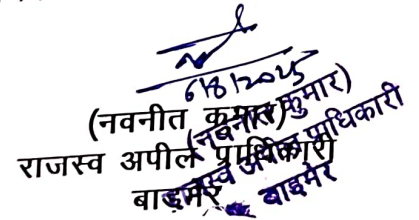 6/8/2025
(नवनीत कुमार)
राजस्व अपील प्राधिकारी
बाड़मेर
(नवनीत कुमार)
राजस्व अपील प्राधिकारी
बाड़मेर